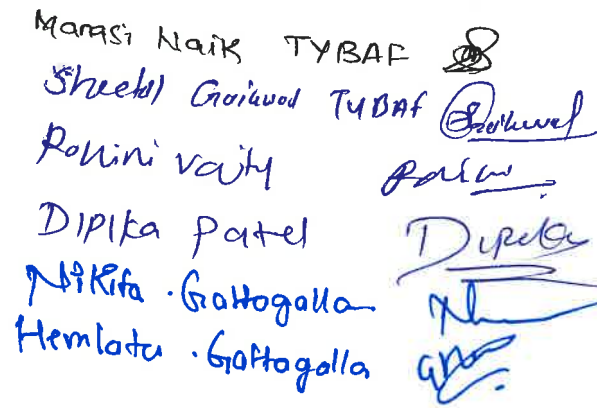 Marasi Naik TYBAF
Sheetal Gaikwad TYBAF Gaikwad
Rohini Vaity Rohini
Dipika Patel Dipika
Nikita . Gattogalla
Hemlata . Gattogalla